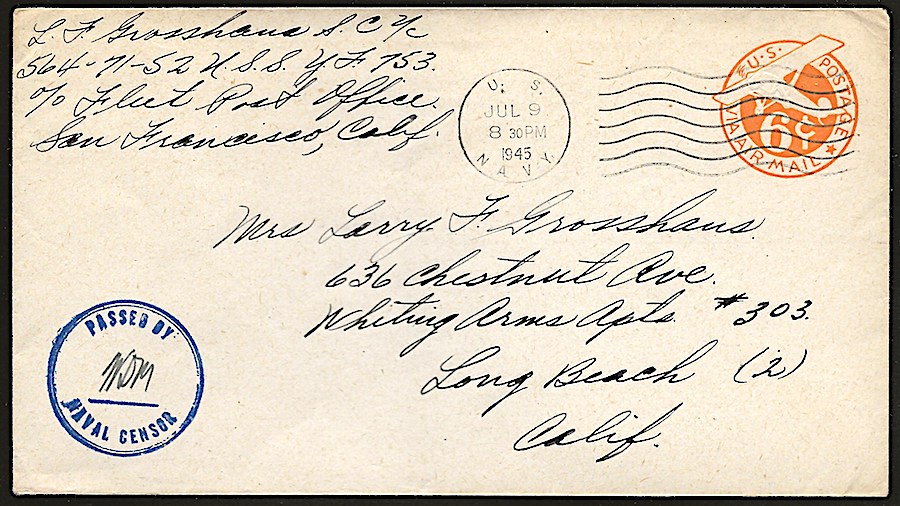 L F. Grosshans S. C 1/c
564-71-52 U.S.S. Y F 753.
c/o Fleet Post Office.
San Francisco, Calif.
U. S.
JUL 9
8 30PM
1945
NAVY
U.S. POSTAGE
6¢
VIA AIR MAIL
Mrs Larry F. Grosshans.
636 Chestnut Ave.
Whiting Arms Apts. #303.
Long Beach (2)
Calif.
PASSED BY
WDM
NAVAL CENSOR